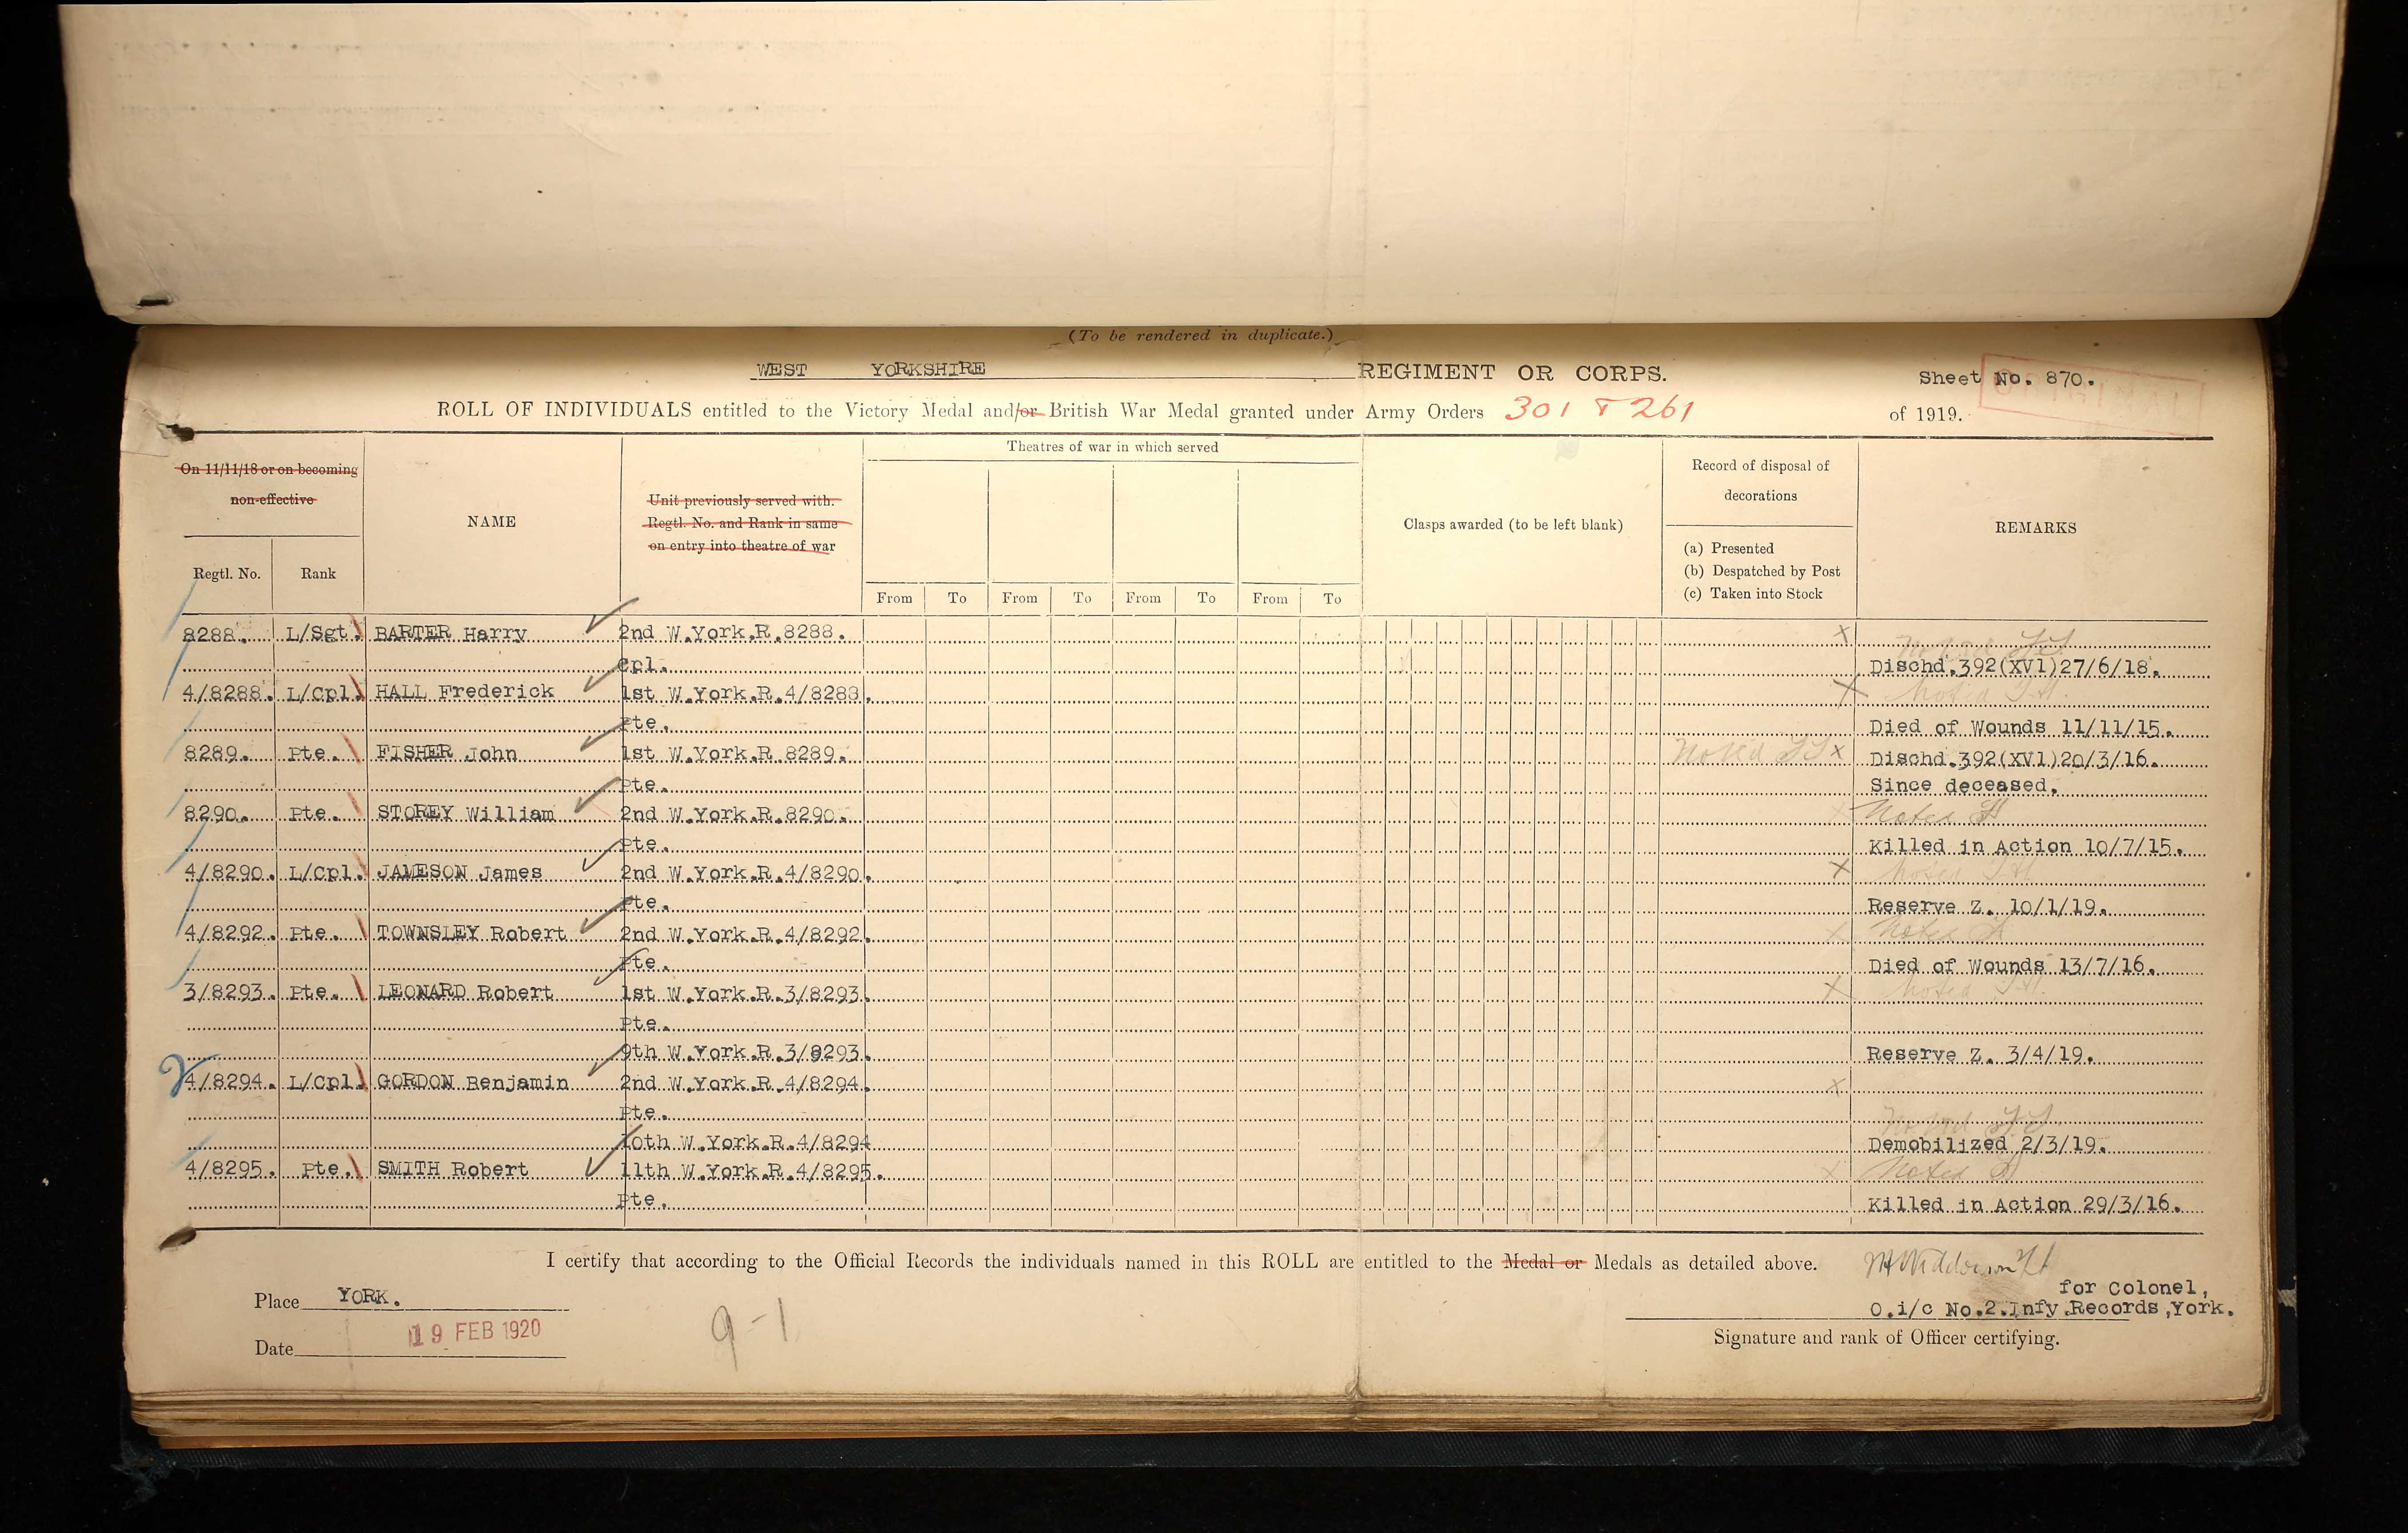 (To be rendered in duplicate.)
WEST YORKSHIRE REGIMENT OR CORPS. Sheet No. 870.
ROLL OF INDIVIDUALS entitled to the Victory Medal and/or British War Medal granted under Army Orders 301 & 261 of 1919.
On 11/11/18 or on becoming
non-effective
Regtl. No. Rank
NAME
Unit previously served with.
Regtl. No. and Rank in same
on entry into theatre of war
Theatres of war in which served
From To From To From To From To
Clasps awarded (to be left blank)
Record of disposal of
decorations
(a) Presented
(b) Despatched by Post
(c) Taken into Stock
REMARKS
8288. L/Sgt. BARTER Harry 2nd W.York.R.8288. x Noted
Cpl. Dischd.392(XVI)27/6/18.
4/8288. L/Cpl. HALL Frederick 1st W.York.R.4/8288. x Noted
Pte. Died of Wounds 11/11/15.
8289. Pte. FISHER John 1st W.York.R.8289. Noted x Dischd.392(XVI)20/3/16.
Pte. Since deceased.
8290. Pte. STOREY William 2nd W.York.R.8290. x Noted
Pte. Killed in Action 10/7/15.
4/8290. L/Cpl. JAMESON James 2nd W.York.R.4/8290. x Noted
Pte. Reserve Z. 10/1/19.
4/8292. Pte. TOWNSLEY Robert 2nd W.York.R.4/8292. x Noted
Pte. Died of Wounds 13/7/16.
3/8293. Pte. LEONARD Robert 1st W.York.R.3/8293. x Noted
Pte.
9th W.York.R.3/8293. Reserve Z. 3/4/19.
2 4/8294. L/Cpl. GORDON Benjamin 2nd W.York.R.4/8294. x
Pte. Noted
10th W.York.R.4/8294 Demobilized 2/3/19.
4/8295. Pte. SMITH Robert 11th W.York.R.4/8295. x Noted
Pte. Killed in Action 29/3/16.
I certify that according to the Official Records the individuals named in this ROLL are entitled to the Medal or Medals as detailed above.
for Colonel,
Place YORK. O.i/c No.2.Infy.Records,York.
Date 19 FEB 1920 9-1
Signature and rank of Officer certifying.